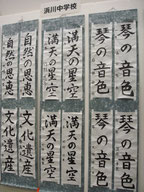 浜川中学校
琴の音色
琴の音色
満天の星空
満天の星空
自然の恩恵
自然の恩恵
琴の音色
琴の音色
満天の星空
満天の星空
文化遺産
文化遺産